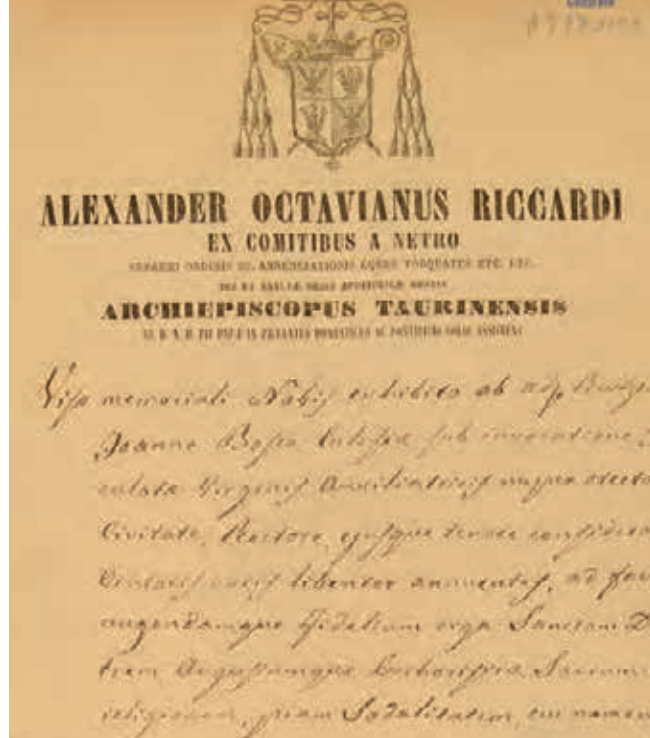 ALEXANDER OCTAVIANUS RICCARDI
EX COMITIBUS A NETRO
ORDINIS SS. ANNUNCIATIONIS EQUES TORQUATUS ETC. ETC.
DEI ET SANCTÆ SEDIS APOSTOLICÆ GRATIA
ARCHIEPISCOPUS TAURINENSIS
PII PAPÆ IX PRÆLATUS DOMESTICUS AC PONTIFICIO SOLIO ASSISTENS
Viso memoriali Nobis exhibito ab
Joanne Bosco Ecclesiæ sub invocatione
culatæ Virginis Auxiliatricis nuper erectæ
Civitate, Rectore, ejusque tenore
libenter annuentes, ad
augendamque Fidelium erga Sanctam
trem Augustumque Eucharistiæ
religionem, piam Sodalitatem, cui nomen